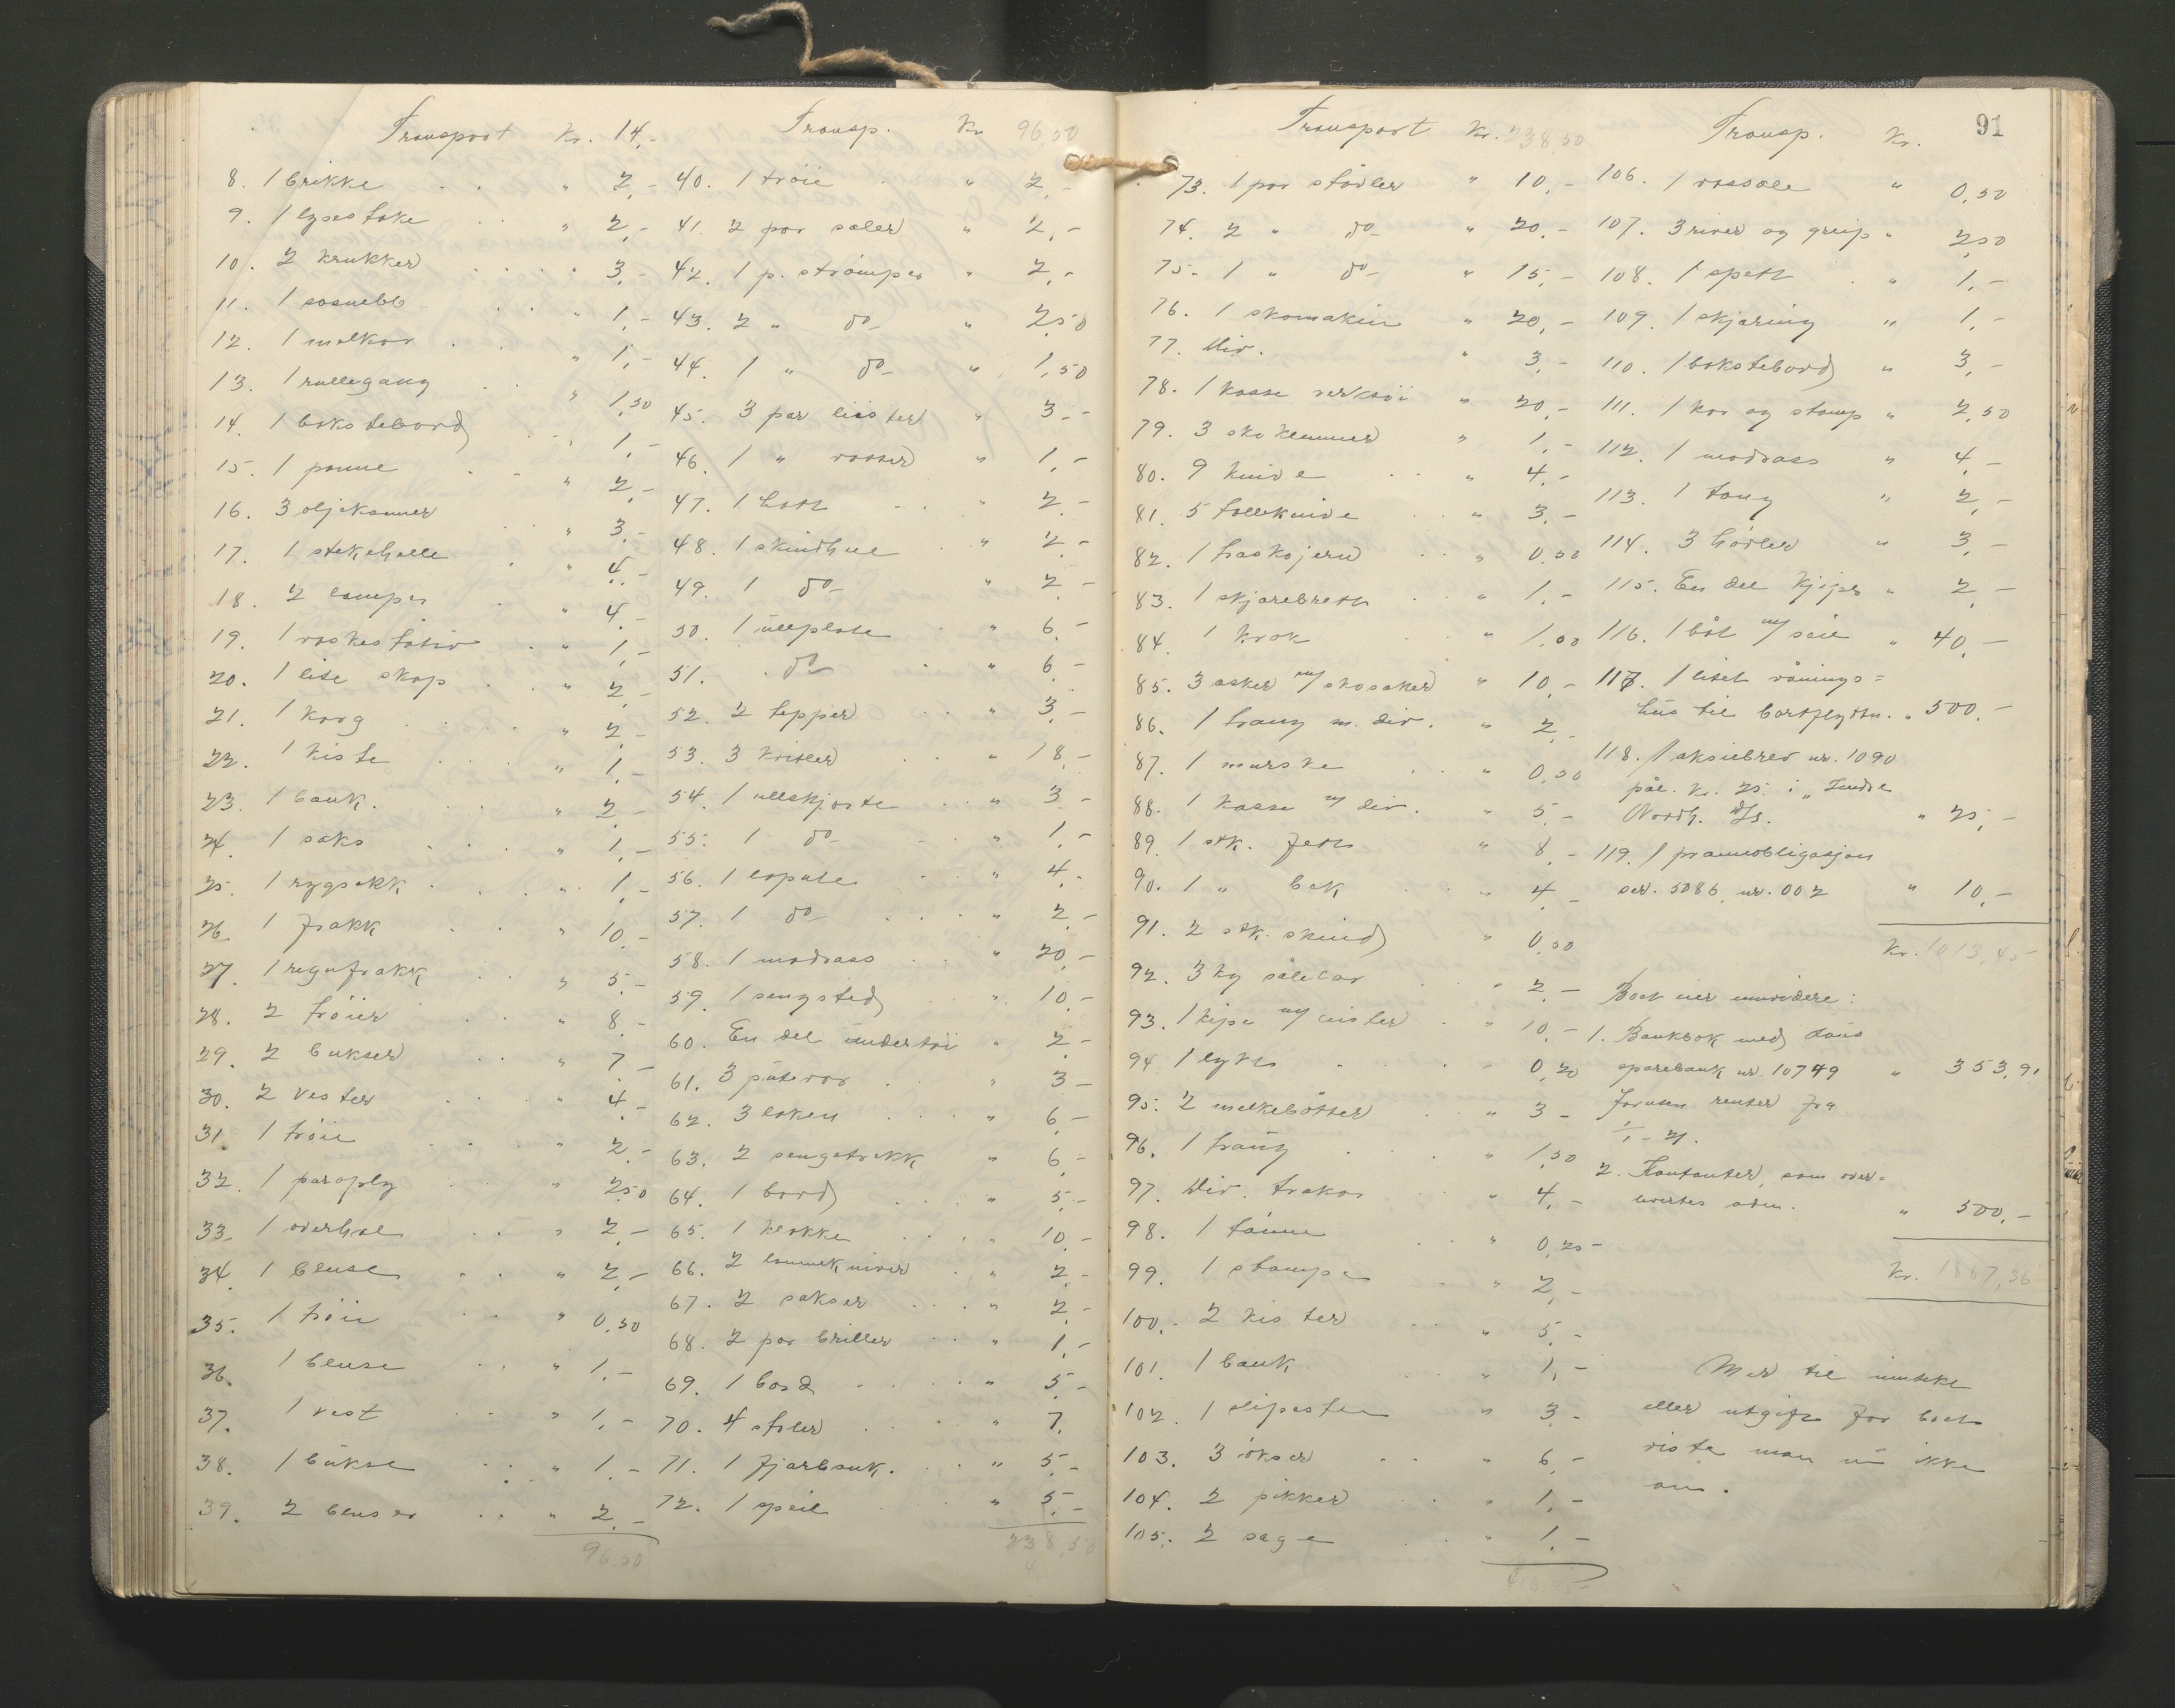 Transport Kr. 14,-
8. 1 brikke " 2,-
9. 1 lysestake " 2,-
10. 2 krukker " 3,-
11. 1 sosnebb " 1,-
12. 1 melkar " 1,-
13. 1 rullegang " 1,50
14. 1 bokstebord 1,-
15. 1 panne " 2,-
16. 3 oljekanner " 3,-
17. 1 stekehelle " 4,-
18. 2 lamper " 4,-
19. 1 vaskestativ " 1,-
20. 1 lite skap " 2,-
21. 1 korg " 2,-
22. 1 kiste " 1,-
23. 1 bank. " 2,-
24. 1 saks " 1,-
25. 1 rygsekk " 1,-
26. 1 frakk " 10,-
27. 1 regnfrakk " 5,-
28. 2 trøier " 8,-
29. 2 bukser " 7,-
30. 2 vester " 4,-
31. 1 trøie " 2,-
32. 1 paraply " 2,50
33. 1 overhal " 2,-
34. 1 bluse " 2,-
35. 1 trøie " 0,50
36. 1 bluse " 1,-
37. 1 vest " 1,-
38. 1 bukse " 1,-
39. 2 bluser " 2,-
96,50
Transp. Kr 96,50
40. 1 trøie " 2,-
41. 2 par saler " 2,-
42. 1 p. strømper " 2,-
43. 2 " do- " 2,50
44. 1 " do- " 1,50
45. 3 par leister " 3,-
46. 1 " votter " 1,-
47. 1 hatt " 2,-
48. 1 skindhue " 2,-
49. 1 do- " 2,-
50. 1 ullplate " 6,-
51. do " 6,-
52. 2 tepper " 3,-
53. 3 kvitler " 18,-
54. 1 ullskjorte " 3,-
55. 1 do- " 1,-
56. 1 lopute " 4,-
57. 1 do " 2,-
58. 1 madrass " 20,-
59. 1 sengsted " 10,-
60. En del undertøi " 2,-
61. 3 putevar " 3-
62. 3 laken " 6,-
63. 2 sengetrekk " 6,-
64. 1 bord " 5,-
65. 1 klokke " 10,-
66. 2 lommekniver " 2,-
67. 2 sakser " 2,-
68. 2 par briller " 1,-
69. 1 bord " 5,-
70. 4 stoler " 7,
71. 1 fjærbenk. " 5,-
72. 1 speil " 5,-
238,50
Transport Kr. 238,50
73. 1 par støvler " 10,-
74. 2 " do- " 20,-
75. 1 " do- " 15,-
76. 1 skomakin " 20,-
77. Div. " 3,-
78. 1 kasse verktøi " 20,-
79. 3 sko klemmer " 1,-
80. 9 knive " 4,-
81. 5 tolleknive " 3,-
82. 1 raskojern " 0,50
83. 1 skjærebrett " 1,-
84. 1 krok " 1,00
85. 3 æsker m/ skosaker " 10,-
86. 1 traug m. div. " 2,-
87. 1 murske " 0,50
88. 1 kasse m/ div. " 5,-
89. 1 stk. fett " 8,-
90. 1 " bek " 4,-
91. 2 stk. skind " 0,50
92. 3 kg sålelær " 2,-
93. 1 kipe m/ leister " 10,-
94. 1 lykt " 0,20
95. 2 melkebøtter " 3-
96. 1 traug " 1,50
97. Div. trekar " 4,-
98. 1 tønne " 0,25-
99. 1 stamp " 2,-
100. 2 kister " 5,-
101. 1 bank " 1,-
102. 1 slipesten " 3,-
103. 3 økser " 6,-
104. 2 pikker " 1,-
105. 2 sage " 1,-
91
Transp. Kr.
106. 1 " 0,50
107. 3 river og greip " 2,50
108. 1 spett " 1,-
109. 1 skjæring " 1,-
110. 1 bokstebord " 3,-
111. 1 kar og stamp " 2,50
112. 1 madrass " 4,-
113. 1 tang " 2,-
114. 3 høvler " 3,-
115. En del kjips " 2,-
116. 1 båt m/ seil " 40,-
117. 1 litet vånings=
hus til bortflytn. " 500,-
118. 1 aksiebrev nr. 1090
pål. kr. 25. i "Søndre
Nordh. A/S. " 25,-
119. 1 premieobligasjon
ser. 5086, nr. 002 " 10,-
Kr. 1013,45
Boet eier umvidere:
1. Bankbok med
sparebank nr. 10749 " 353,91
Foruten renter fra
1/1-21.
2. Kontanter, som over=
levertes adm. " 500,-
Kr. 1867,36
Mer til inntekt
eller utgift for boet
viste man nu ikke
om.